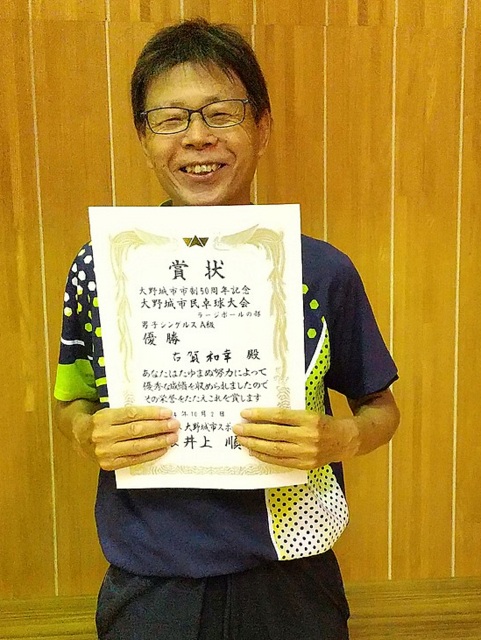 賞状
大野城市市制50周年記念
大野城市民卓球大会
ラージボールの部
男子シングルスA級
優勝
古賀和幸 殿
あなたはたゆまぬ努力によって
優秀な成績を収められましたので
その栄誉をたたえこれを賞します
年10月2
大野城市スポ
井上 順